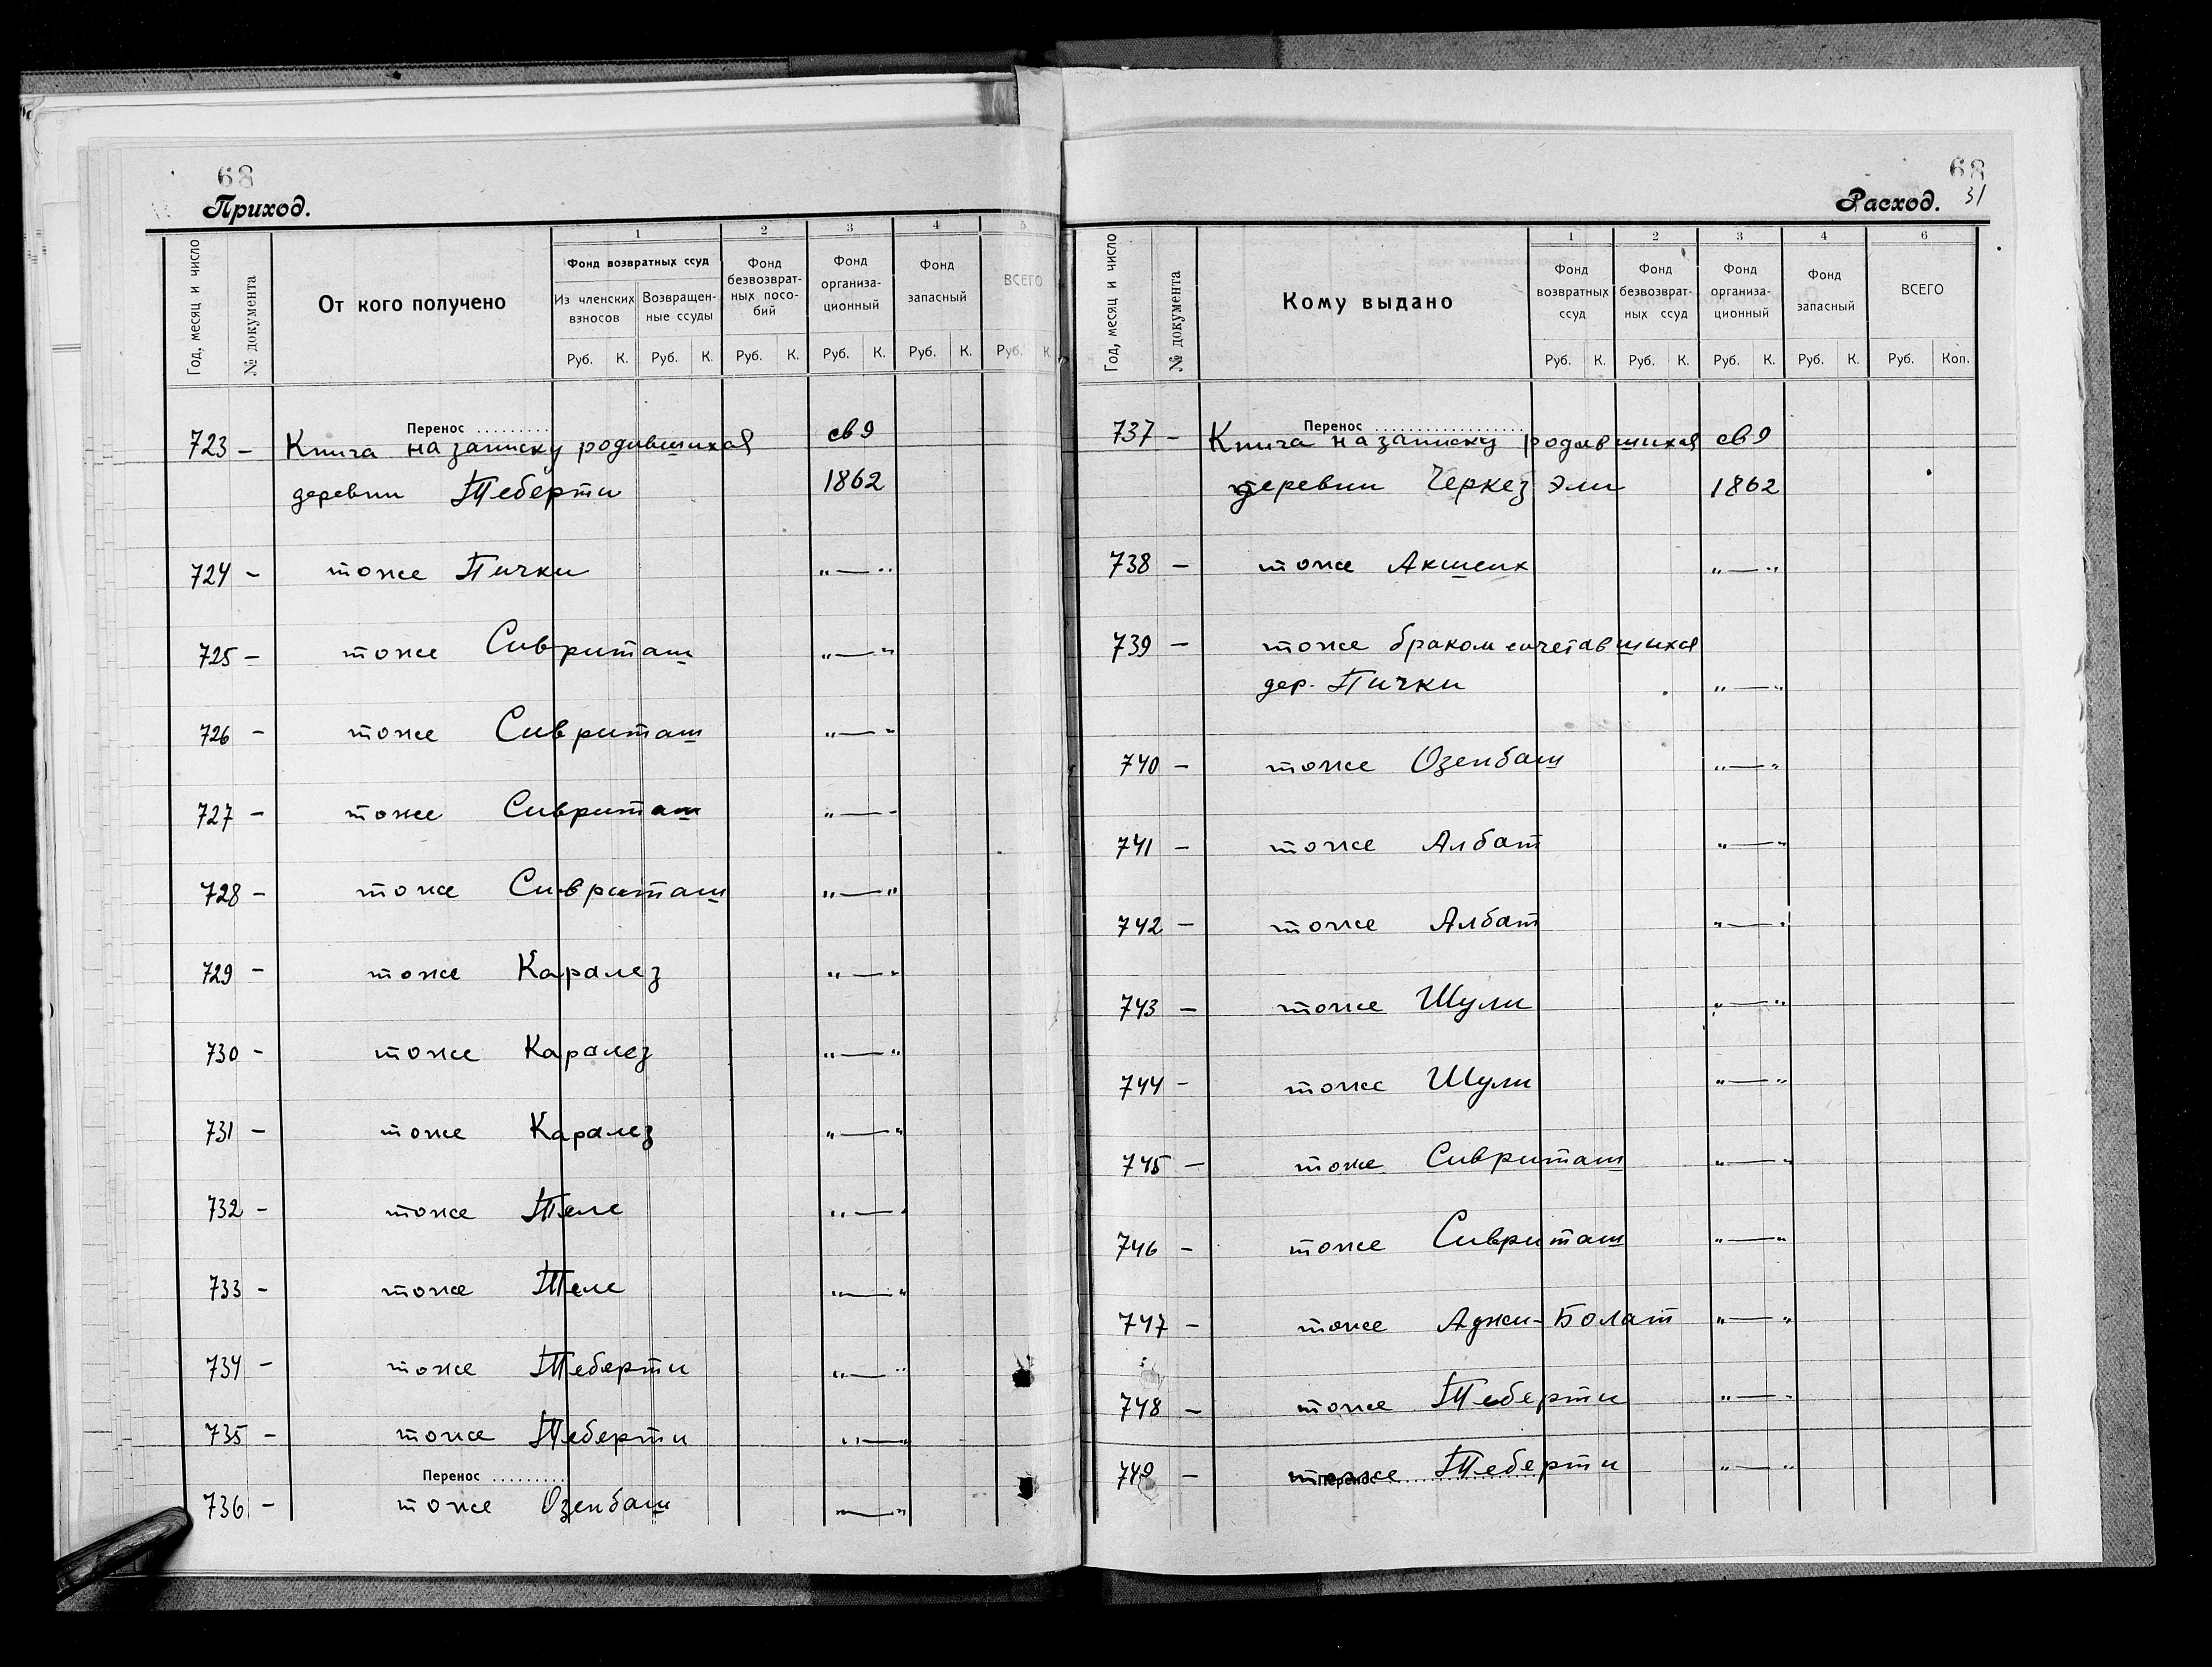 68
Приход.
Год, месяц и число
№ документа
От кого получено
1
Фонд возвратных ссуд
Из членских взносов
Возвращен-
ные ссуды
2
Фонд
безвозврат-
ных посо-
бий
3
Фонд
организа-
ционный
4
Фонд
запасный
5
ВСЕГО
Руб. К. Руб. К. Руб. К. Руб. К. Руб. К. Руб. К.
Перенос ..........
723 – Книга на записку родившихся св 9
деревни Теберти 1862
724 – тоже Пички „—“
725 – тоже Сивриташ „—“
726 – тоже Сивриташ „—“
727 – тоже Сивриташ „—“
728 – тоже Сивриташ „—“
729 – тоже Каралез „—“
730 – тоже Каралез „—“
731 – тоже Каралез „—“
732 – тоже Теле „—“
733 – тоже Теле „—“
734 – тоже Теберти „—“
735 – тоже Теберти „—“
Перенос ..........
736 – тоже Озенбаш „—“
68
31
Расход.
Год, месяц и число
№ документа
Кому выдано
1
Фонд
возвратных
ссуд
2
Фонд
безвозврат-
ных ссуд
3
Фонд
организа-
ционный
4
Фонд
запасный
6
ВСЕГО
Руб. К. Руб. К. Руб. К. Руб. К. Руб. Коп.
Перенос ..........
737 – Книга на записку родившихся св 9
деревни Черкез Эли 1862
738 – тоже Акшеих „—“
739 – тоже браком сочетавшихся
дер. Пички „—“
740 – тоже Озенбаш „—“
741 – тоже Албат „—“
742 – тоже Албат „—“
743 – тоже Шули „—“
744 – тоже Шули „—“
745 – тоже Сивриташ „—“
746 – тоже Сивриташ „—“
747 – тоже Аджи-Болат „—“
748 – тоже Теберти „—“
749 – тоже Теберти „—“
Перенос ..........